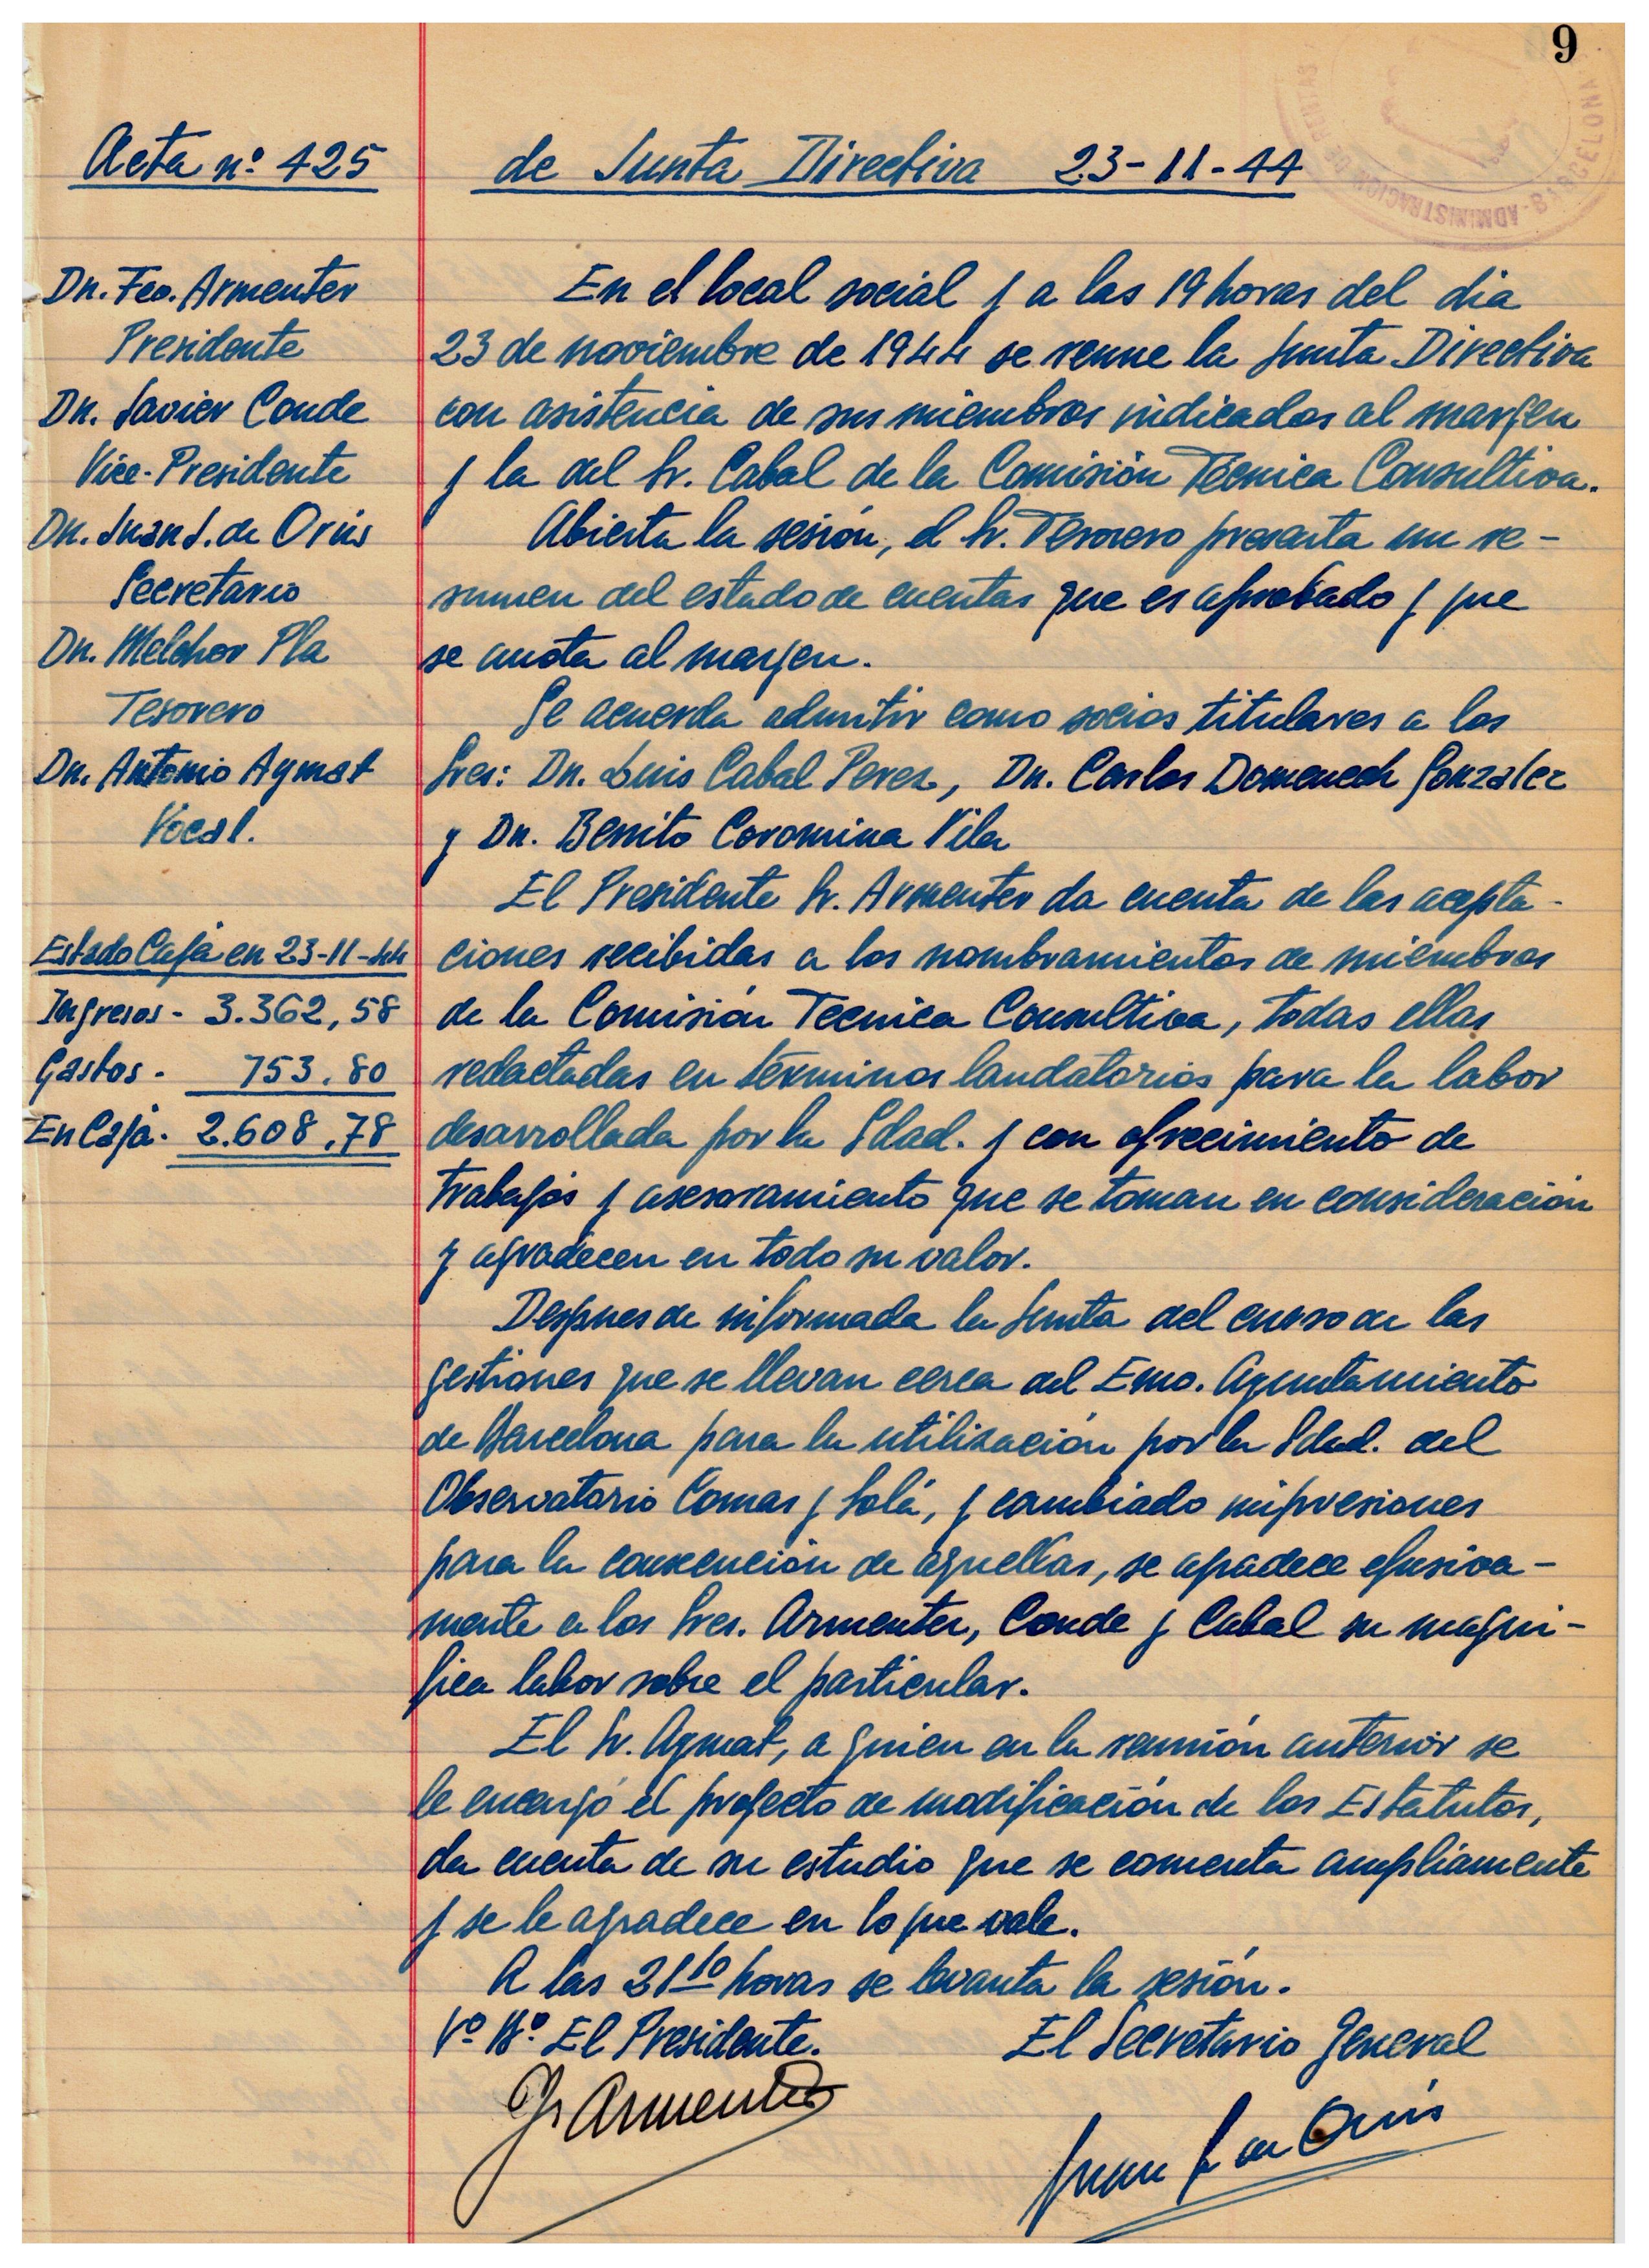 9
Acta nº 425
de Junta Directiva 23-11-44
Dn. Fco. Armenter
Presidente
Dn. Javier Conde
Vice-Presidente
Dn. Juan J. de Orús
Secretario
Dn. Melchor Pla
Tesorero
Dn. Antonio Aymat
Vocal.
Estado Caja en 23-11-44
Ingresos - 3.362,58
Gastos - 753.80
En Caja - 2.608,78
En el local social y a las 19 horas del dia
23 de noviembre de 1944 se reune la Junta Directiva
con asistencia de sus miembros indicados al margen
y la del Sr. Cabal de la Comisión Técnica Consultiva.
Abierta la sesión, el Sr. Tesorero presenta un re-
sumen del estado de cuentas que es aprobado y que
se anota al margen.
Se acuerda admitir como socios titulares a los
Sres: Dn. Luis Cabal Perez, Dn. Carlos Domenech Gonzalez
y Dn. Benito Coromina Vila
El Presidente Sr. Armenter da cuenta de las acepta-
ciones recibidas a los nombramientos de miembros
de la Comisión Tecnica Consultiva, todas ellas
redactadas en términos laudatorios para la labor
desarrollada por la Sdad. y con ofrecimiento de
trabajos y asesoramiento que se toman en consideración
y agradecen en todo su valor.
Despues de informada la Junta del curso de las
gestiones que se llevan cerca del Emo. Ayuntamiento
de Barcelona para la utilización por la Sdad. del
Observatorio Comas y Solá, y cambiado impresiones
para la consecución de aquellas, se agradece efusiva-
mente a los Sres. Armenter, Conde y Cabal su magní-
fica labor sobre el particular.
El Sr. Aymat, a quien en la reunión anterior se
le encargó el proyecto de modificación de los Estatutos,
da cuenta de su estudio que se comenta ampliamente
y se le agradece en lo que vale.
A las 21 10 horas se levanta la sesión.
Vº Bº El Presidente.
El Secretario General
Armenter
Juan J. de Orús
ADMINISTRACION DE RENTAS
BARCELONA